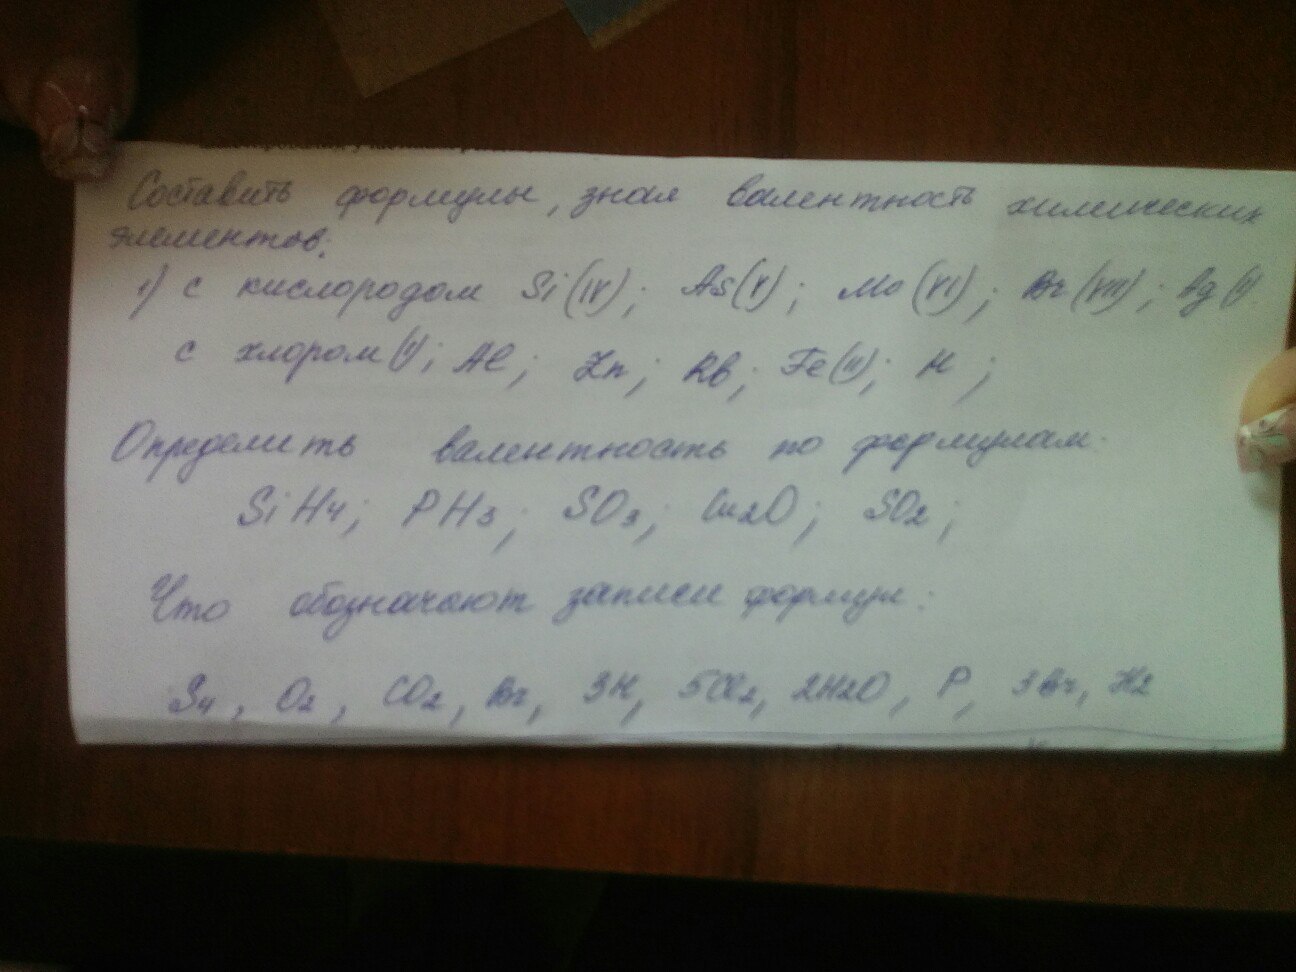 Составить формулы, зная валентность химических
элементов:
1) с кислородом Si(IV); As(V); Mo(VI); Br(VII); Ag(I)
с хлором(I); Al; Zn; Rb; Fe(II); H;
Определить валентность по формулам.
SiH4; PH3; SO3; Cu2O; SO2;
Что обозначают записи формул:
S4, O2, CO2, Br, 3H, 5Cl2, 2H2O, P, 3Br, H2